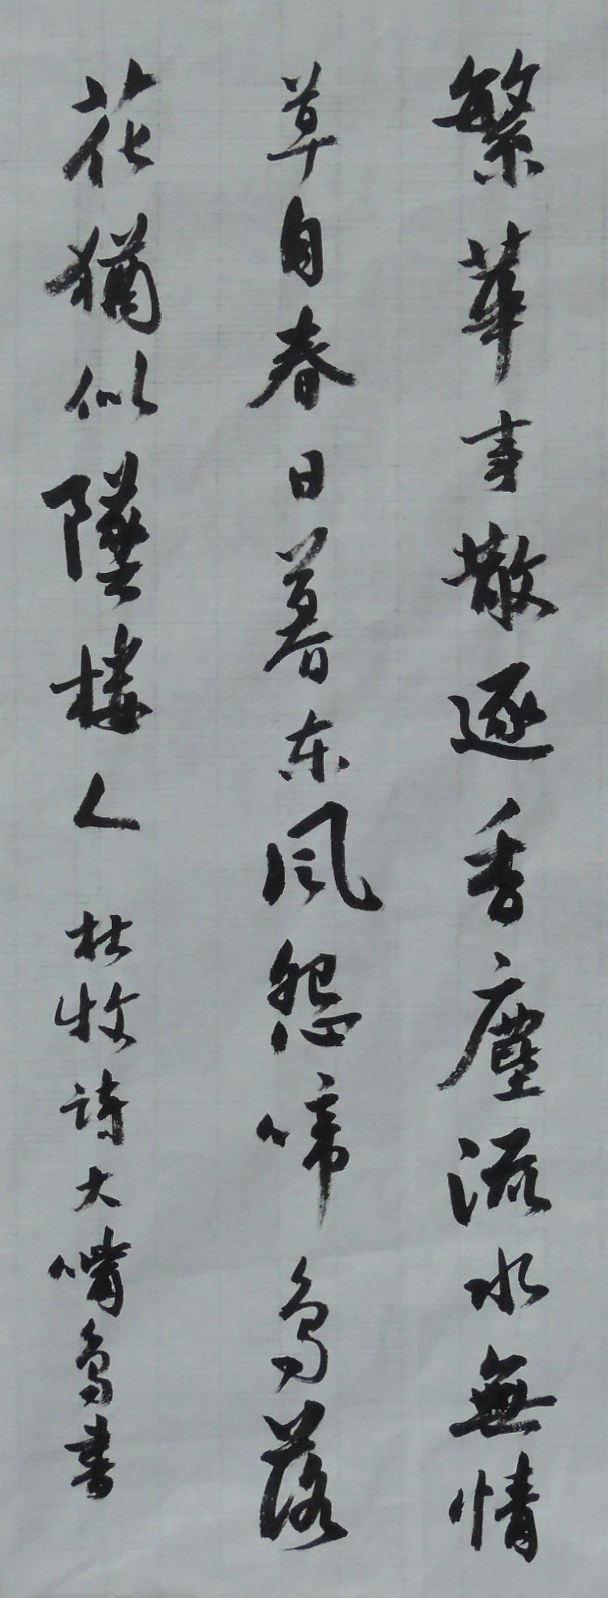 繁華事散逐香塵流水無情
草自春日暮東風怨啼鳥落
花猶似墜樓人 杜牧詩大嘴鳥書